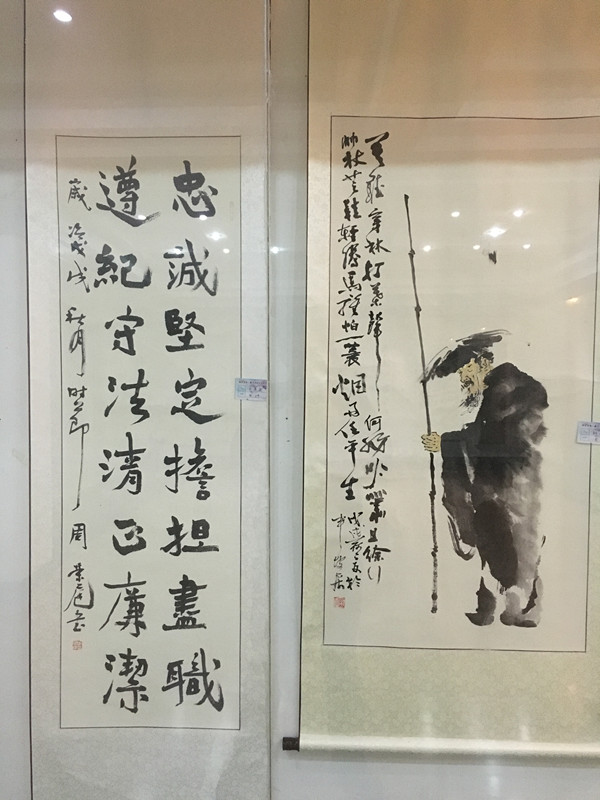 莫聽穿林打葉聲何妨吟嘯且徐行
竹杖芒鞋輕勝馬誰怕一蓑烟雨任平生
忠誠堅定擔担盡職
遵紀守法清正廉潔
歲次戊戌秋月時節周景